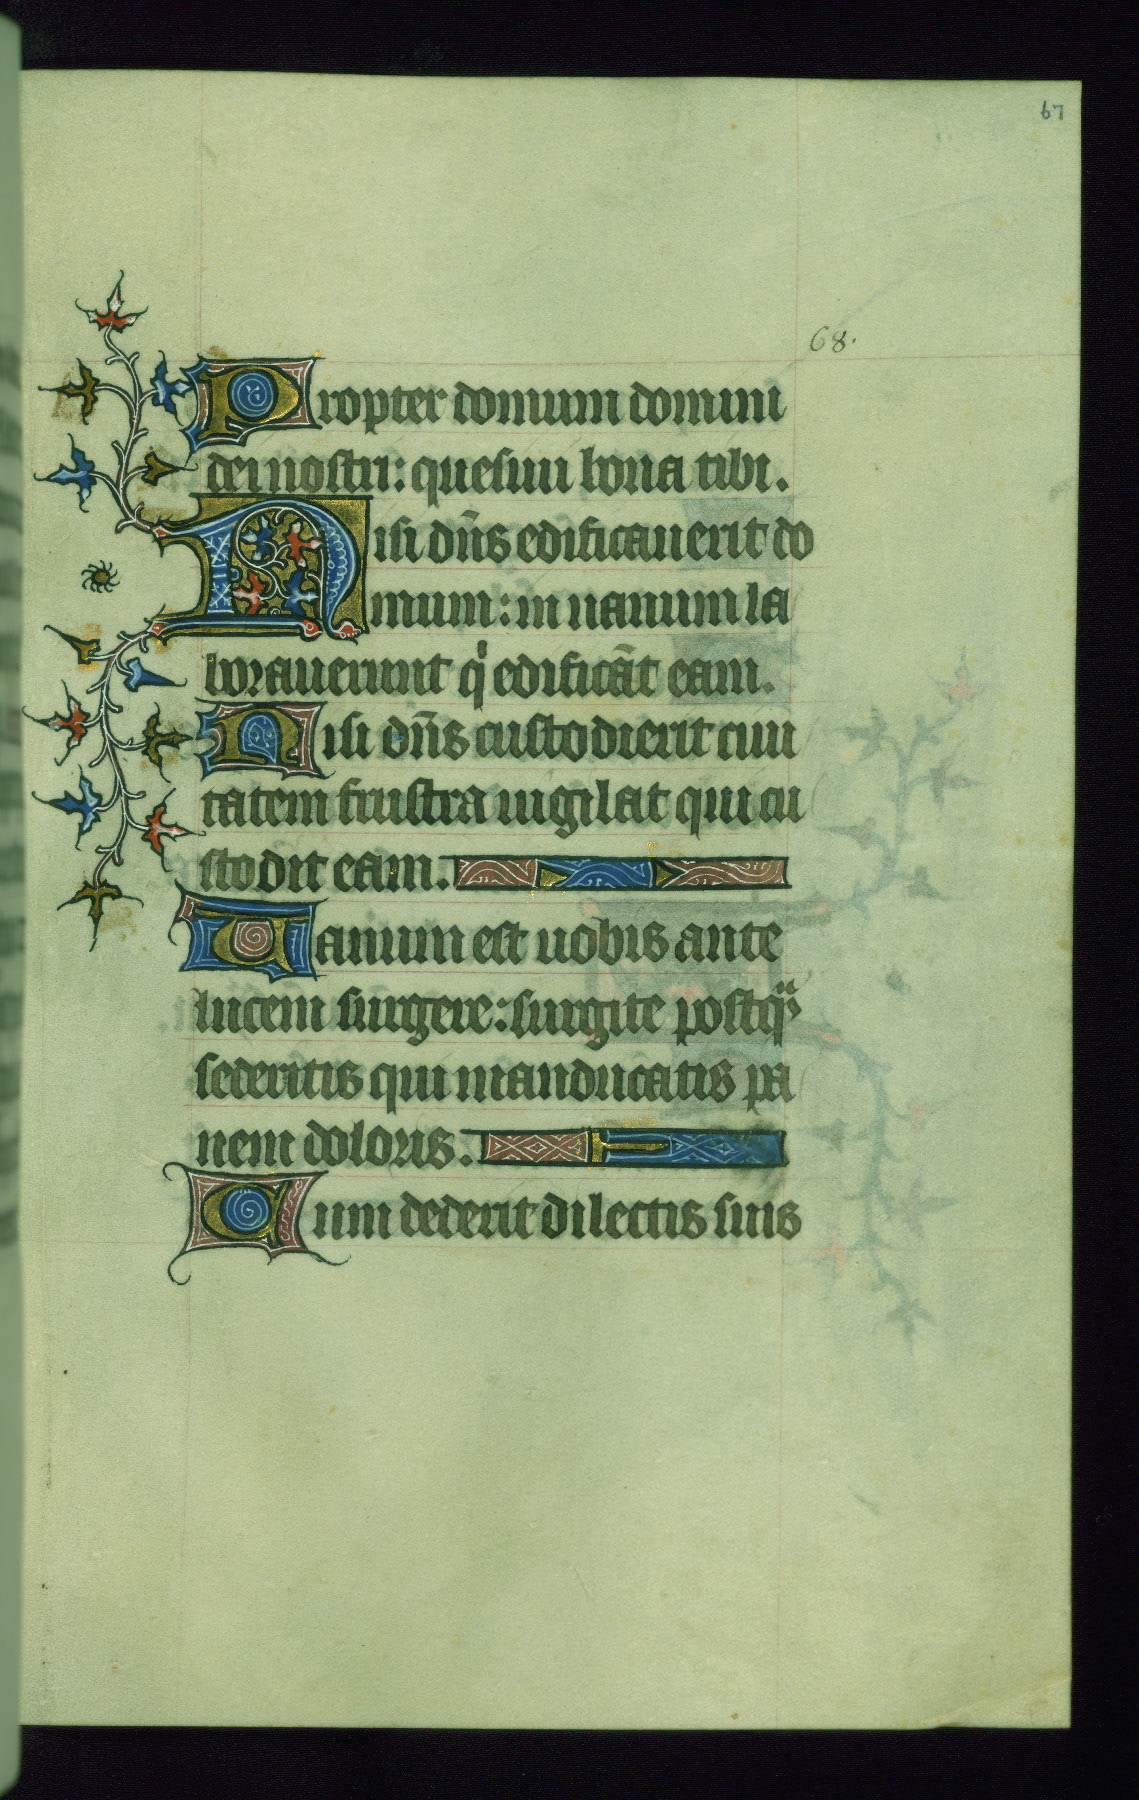 67
68.
Propter domum domini
dei nostri: quesiui bona tibi.
Nisi dn̄s edificauerit do
mum: in uanum la
borauerunt qͥ edificāt eam.
Nisi dn̄s custodierit ciui
tatem frustra uigilat qui cu
stodit eam.
Uanum est uobis ante
lucem surgere: surgite postqᷓ
sederitis qui manducatis pa
nem doloris.
Cum dederit dilectis suis